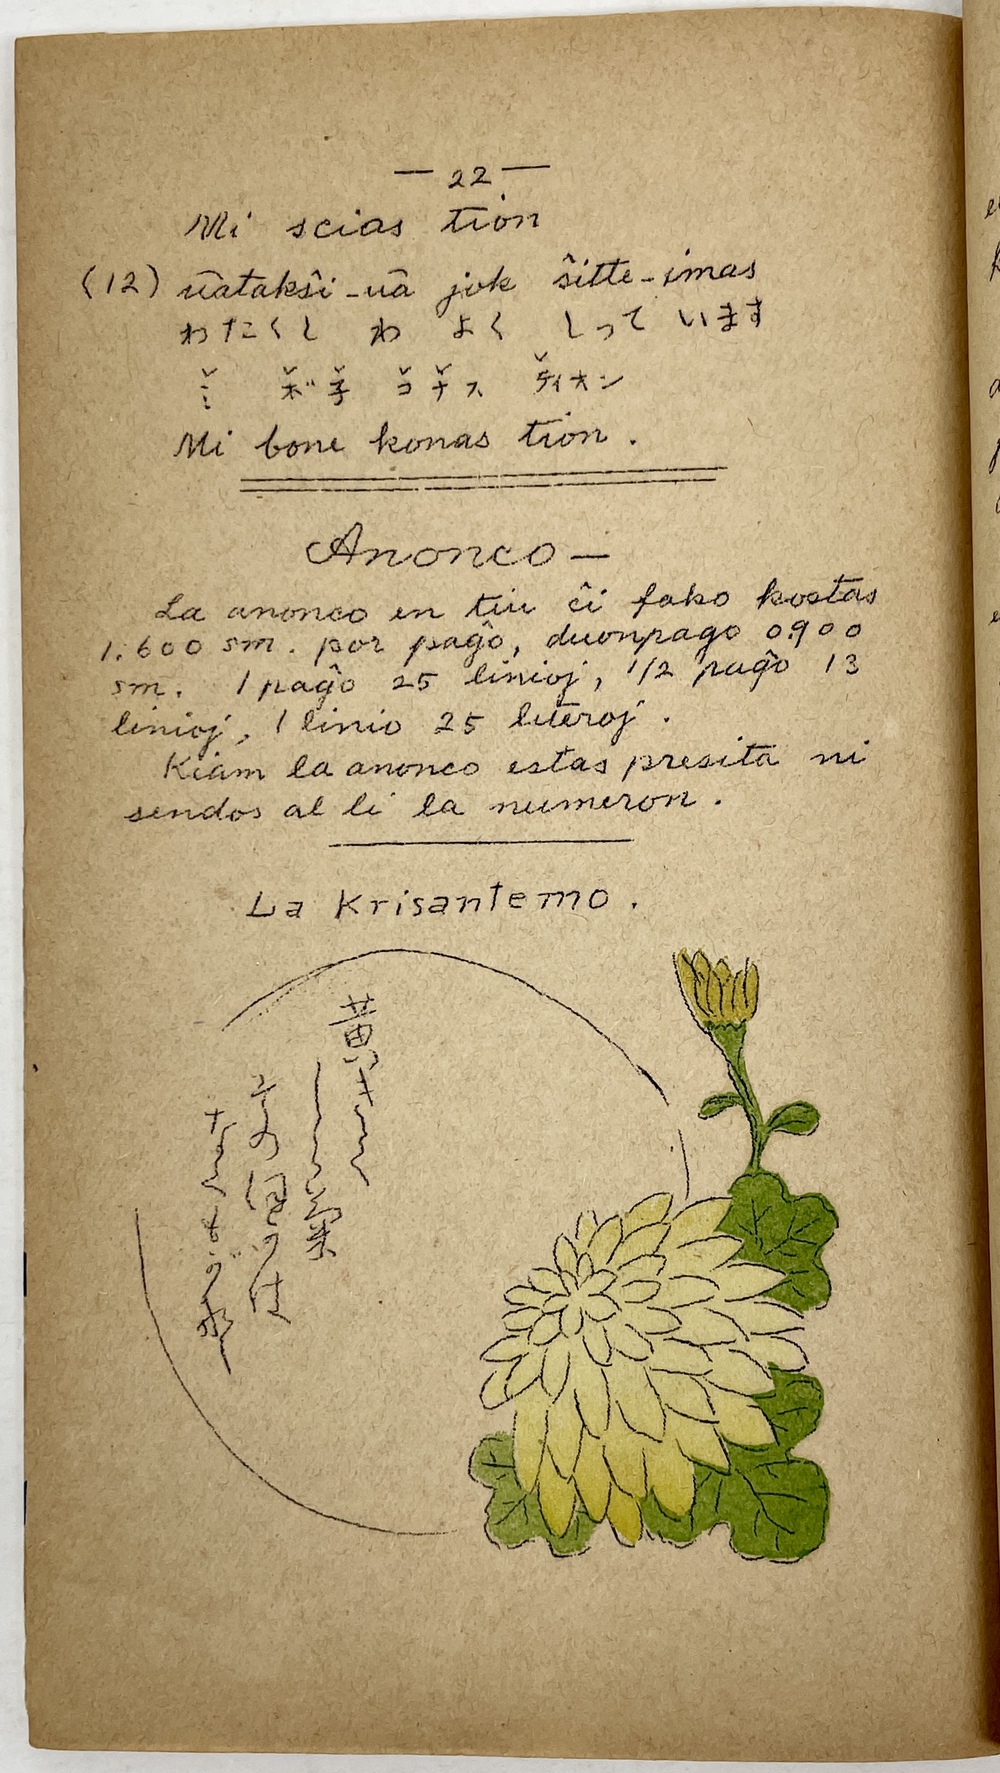 — 22 —
Mi scias tion
(12) ŭatakŝi-ŭa jok ŝitte-imas
わたくし わ よく しって います
ミ ボ子 コナス ティオン
Mi bone konas tion.
Anonco—
La anonco en tiu ĉi fako kostas
1.600 sm. por paĝo, duonpago 0.900
sm. 1 paĝo 25 linioj, 1/2 paĝo 13
linioj, 1 linio 25 literoj.
Kiam la anonco estas presita ni
sendos al li la numeron.
La Krisantemo.
黄
菊